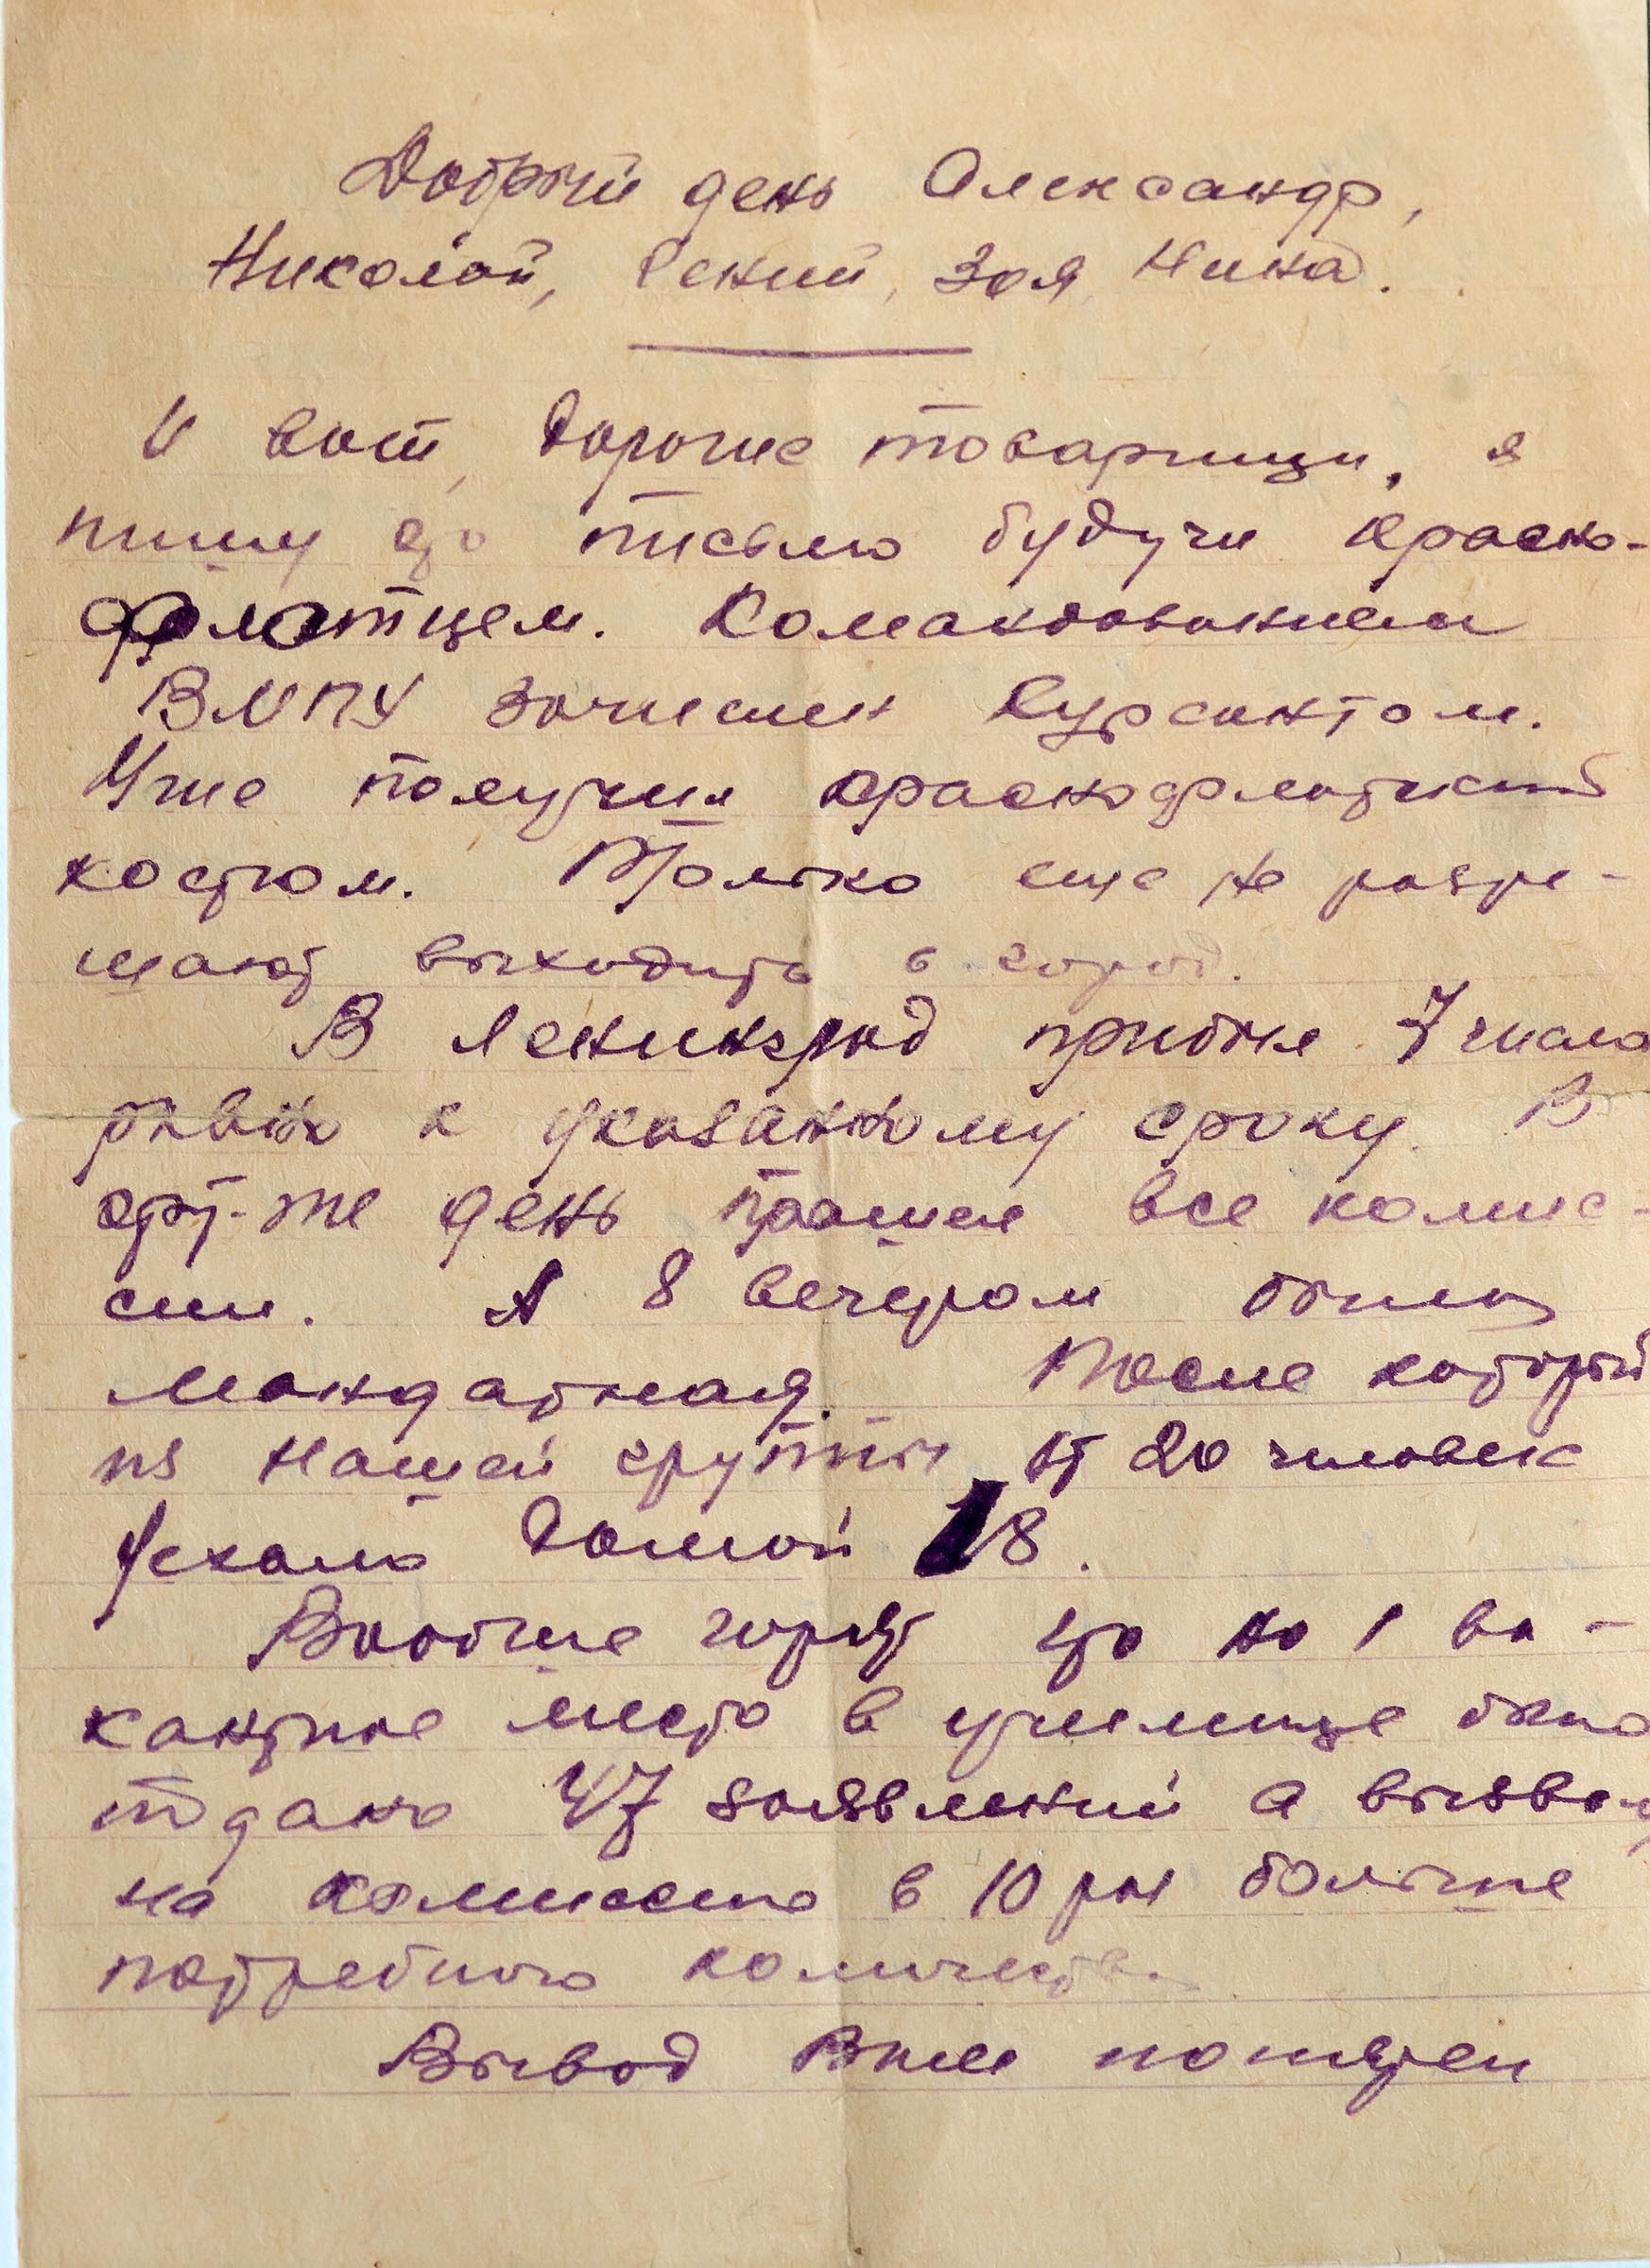 Добрый день Александр,
Николай, Гений, Зоя, Нина.
И вот, дорогие товарищи, я
пишу это письмо будучи красно-
флотцем. Командованием
ВМПУ зачислен курсантом.
Уже получил краснофлотский
костюм. Только еще не разре-
шают выходить в город.
В Ленинград прибыл 7 числа
ровно к указанному сроку. В
этот-же день прошел все комис-
сии. А 8 вечером была
мандатная. После которой
из нашей группы от 20 человек
уехало домой 18.
Вообще говоря что на 1 ва-
кантное место в училище было
подано 47 заявлений а вызвал
на комиссию в 10 раз больше
потребного количества.
Вывод Вам понятен